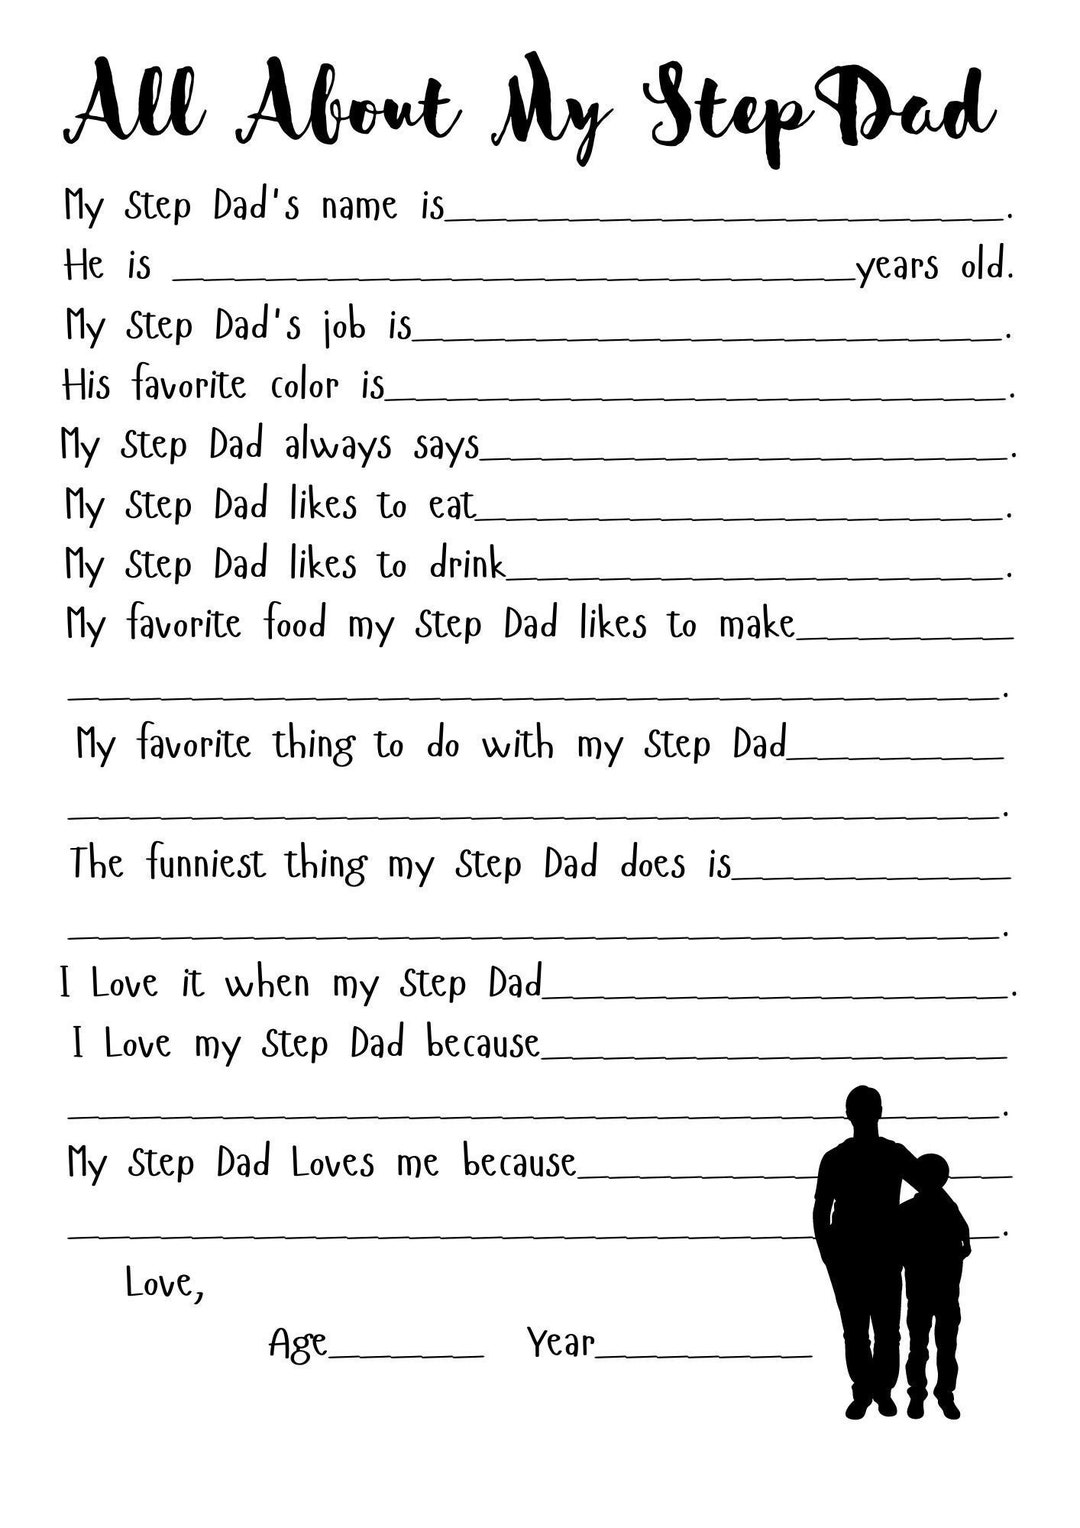 All About My StepDad
My Step Dad's name is____________________.
He is ____________________years old.
My Step Dad's job is____________________.
His favorite color is____________________.
My Step Dad always says____________________.
My Step Dad likes to eat____________________.
My Step Dad likes to drink____________________.
My favorite food my Step Dad likes to make__________
____________________.
My favorite thing to do with my Step Dad__________
____________________.
The funniest thing my Step Dad does is__________
____________________.
I Love it when my Step Dad____________________.
I Love my Step Dad because____________________
____________________.
My Step Dad Loves me because____________________
____________________.
Love,
Age_____ Year_______